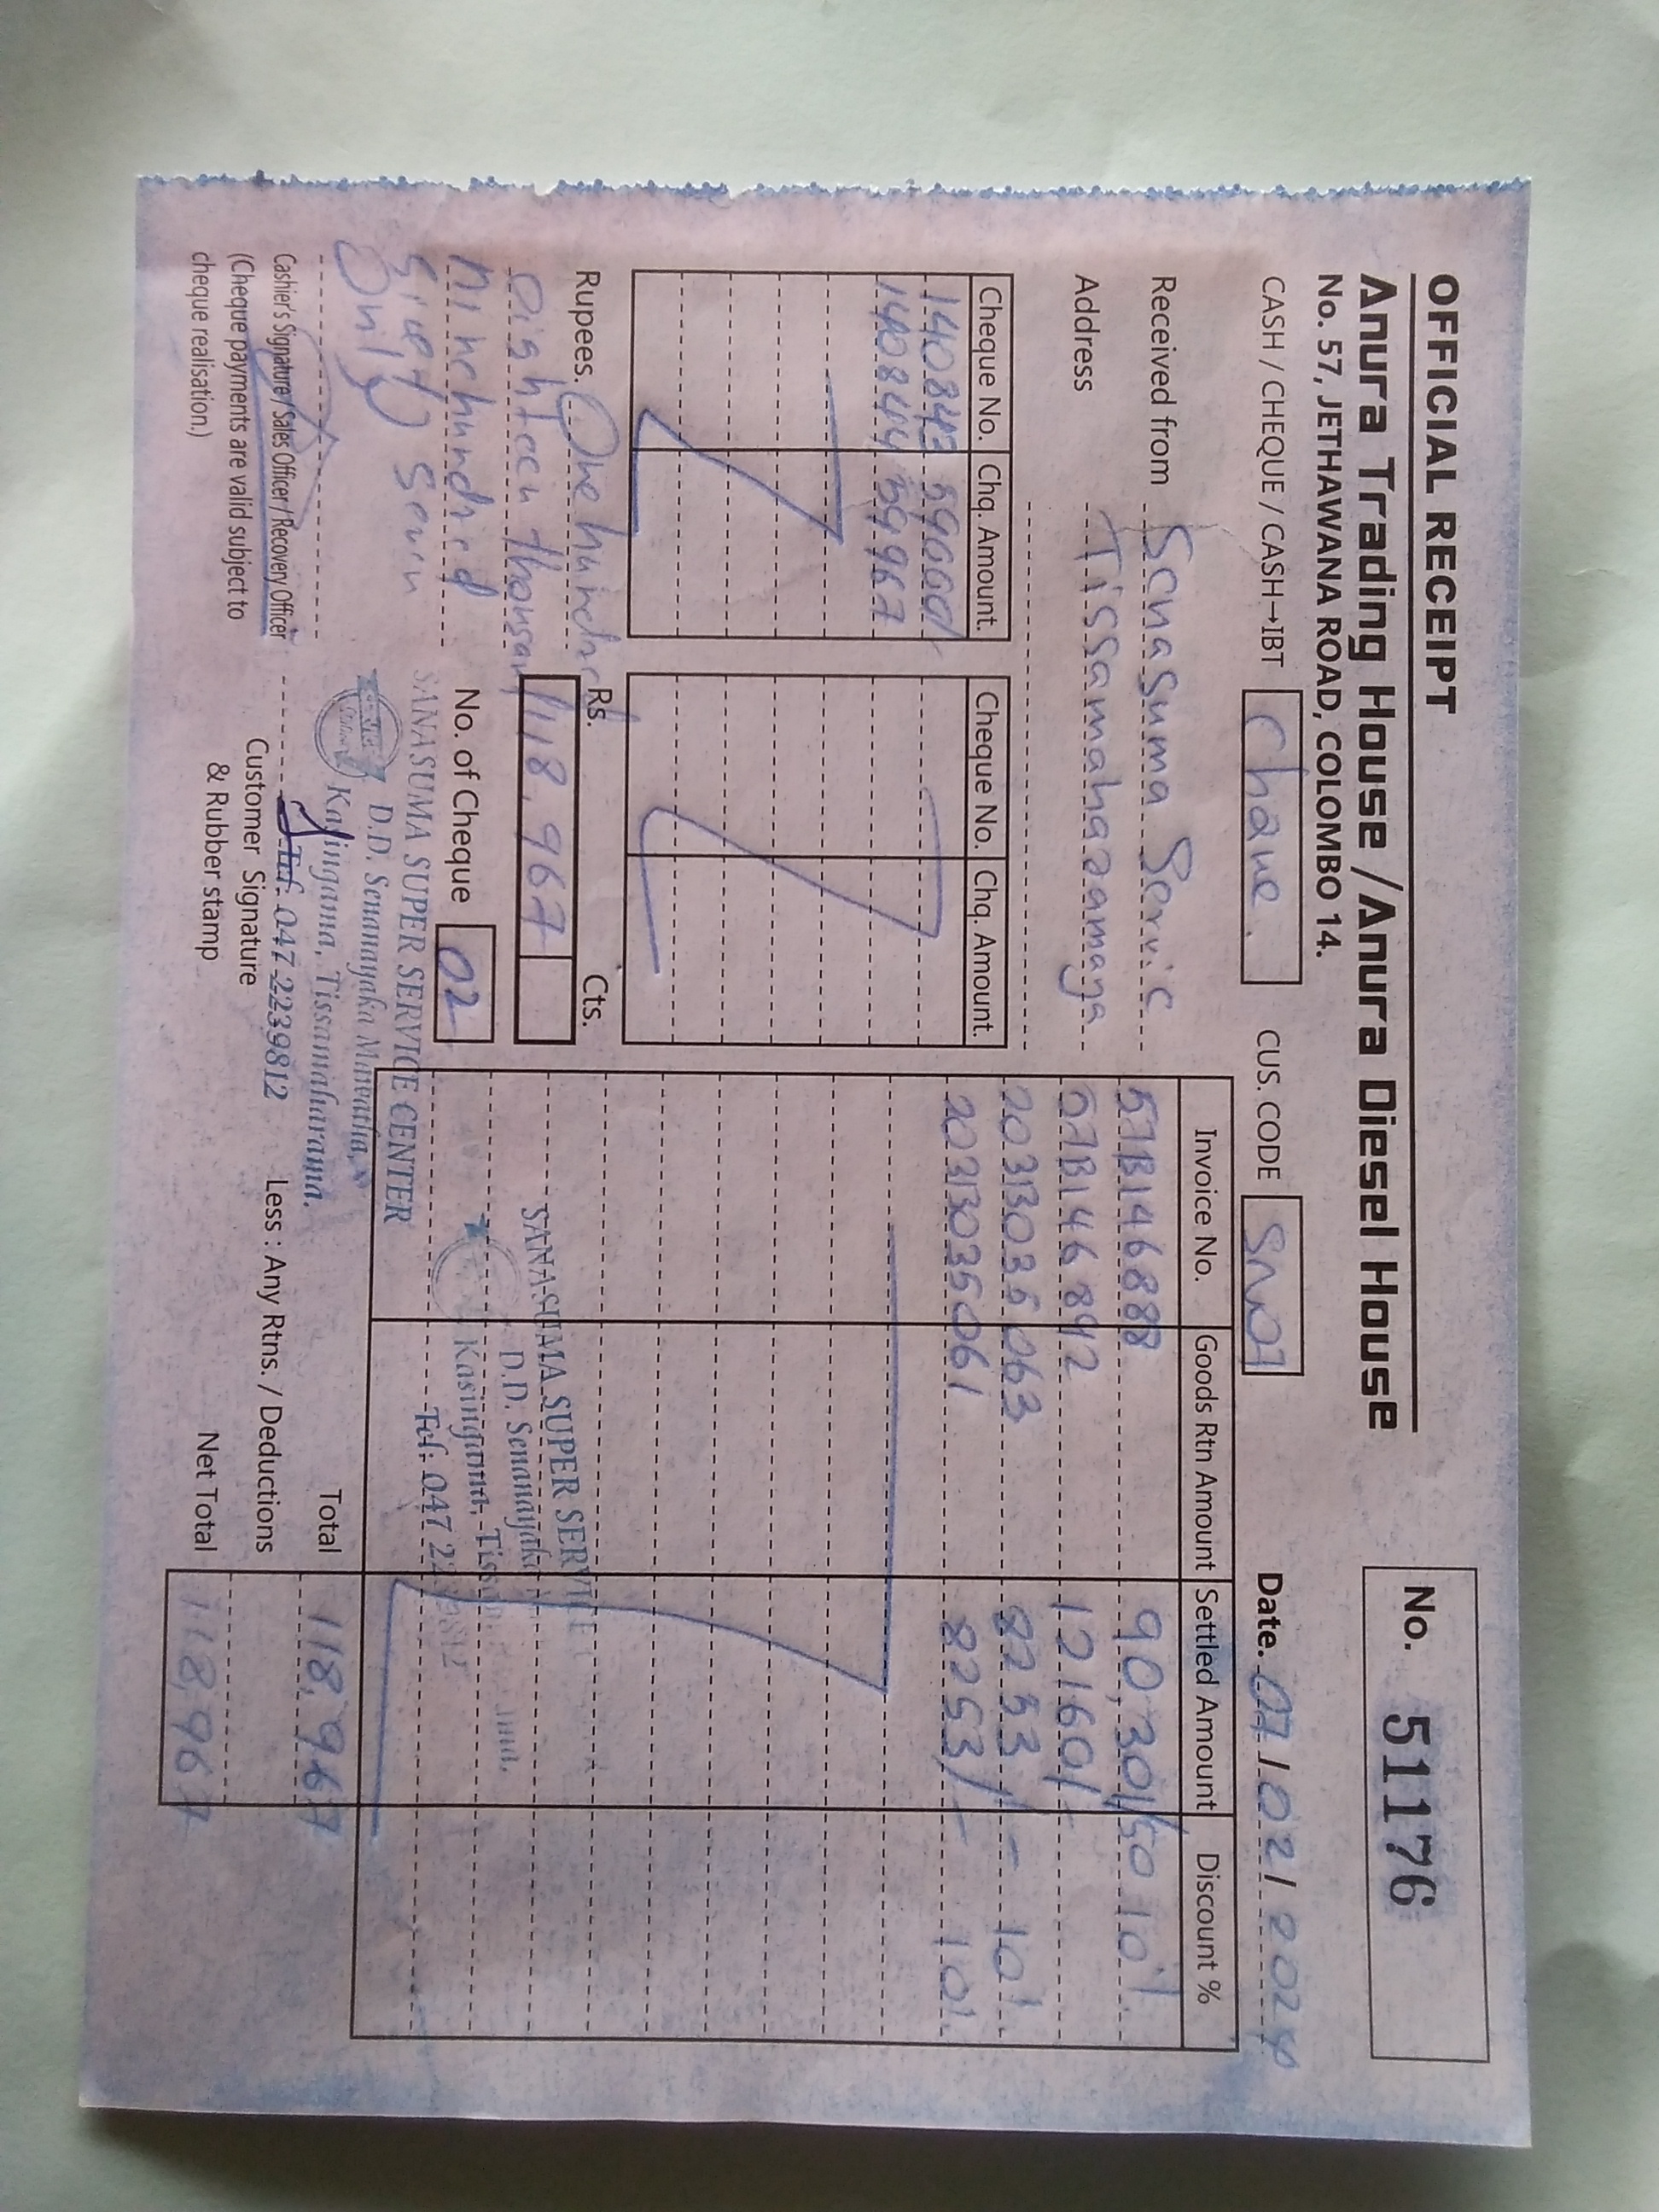 OFFICIAL RECEIPT
Anura Trading House / Anura Diesel House
No. 57, JETHAWANA ROAD, COLOMBO 14.
No. 51176
CASH / CHEQUE / CASH→IBT
CUS. CODE
Date. 07/02/2024
Received from Senasuma Servic
Address Tissamaharamaya
Cheque No. Chq. Amount.
140843 59000/
140844 59967
Cheque No. Chq. Amount.
Invoice No. Goods Rtn Amount Settled Amount Discount %
57B146888 90,301/50 10%
57B146892 12160/-
20313035063 8253/- 10%
20313035061 8253/- 10%
Rupees. One hundred
eighteen thousand
ninehundred
sixty seven
Only
Rs. Cts.
118,967
No. of Cheque 02
SANASUMA SUPER SERVICE CENTER
D.D. Senanayaka Mawatha,
Kasingama, Tissamaharama.
Tel: 047 2239812
SANASUMA SUPER SERVICE
D.D. Senanayaka
Kasingama,
Tel: 047 22
Cashier's Signature / Sales Officer / Recovery Officer
(Cheque payments are valid subject to
cheque realisation.)
Customer Signature
& Rubber stamp
Total 118,967
Less : Any Rtns. / Deductions
Net Total 118,967